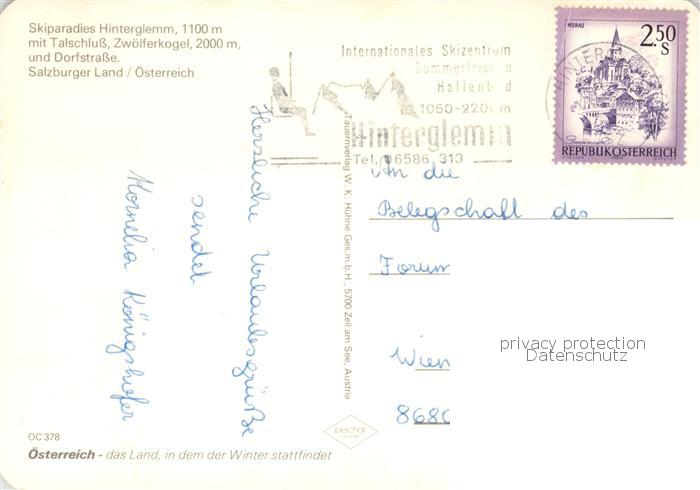 Skiparadies Hinterglemm, 1100 m
mit Talschluß, Zwölferkogel, 2000 m,
und Dorfstraße.
Salzburger Land / Österreich
Internationales Skizentrum
Sommerfrische
Hallenbad
1050-2200 m
Hinterglemm
Tel. 06586 313
MURAU
2.50
S
REPUBLIK ÖSTERREICH
HINTER
Herzliche Urlaubsgrüße
sendet
Kornelia Königshofer
Tauernverlag W. K. Hühne Ges.m.b.H., 5700 Zell am See, Austria
An die
Belegschaft des
Forum
Wien
8680
privacy protection
Datenschutz
peichär
OC 378
Österreich - das Land, in dem der Winter stattfindet